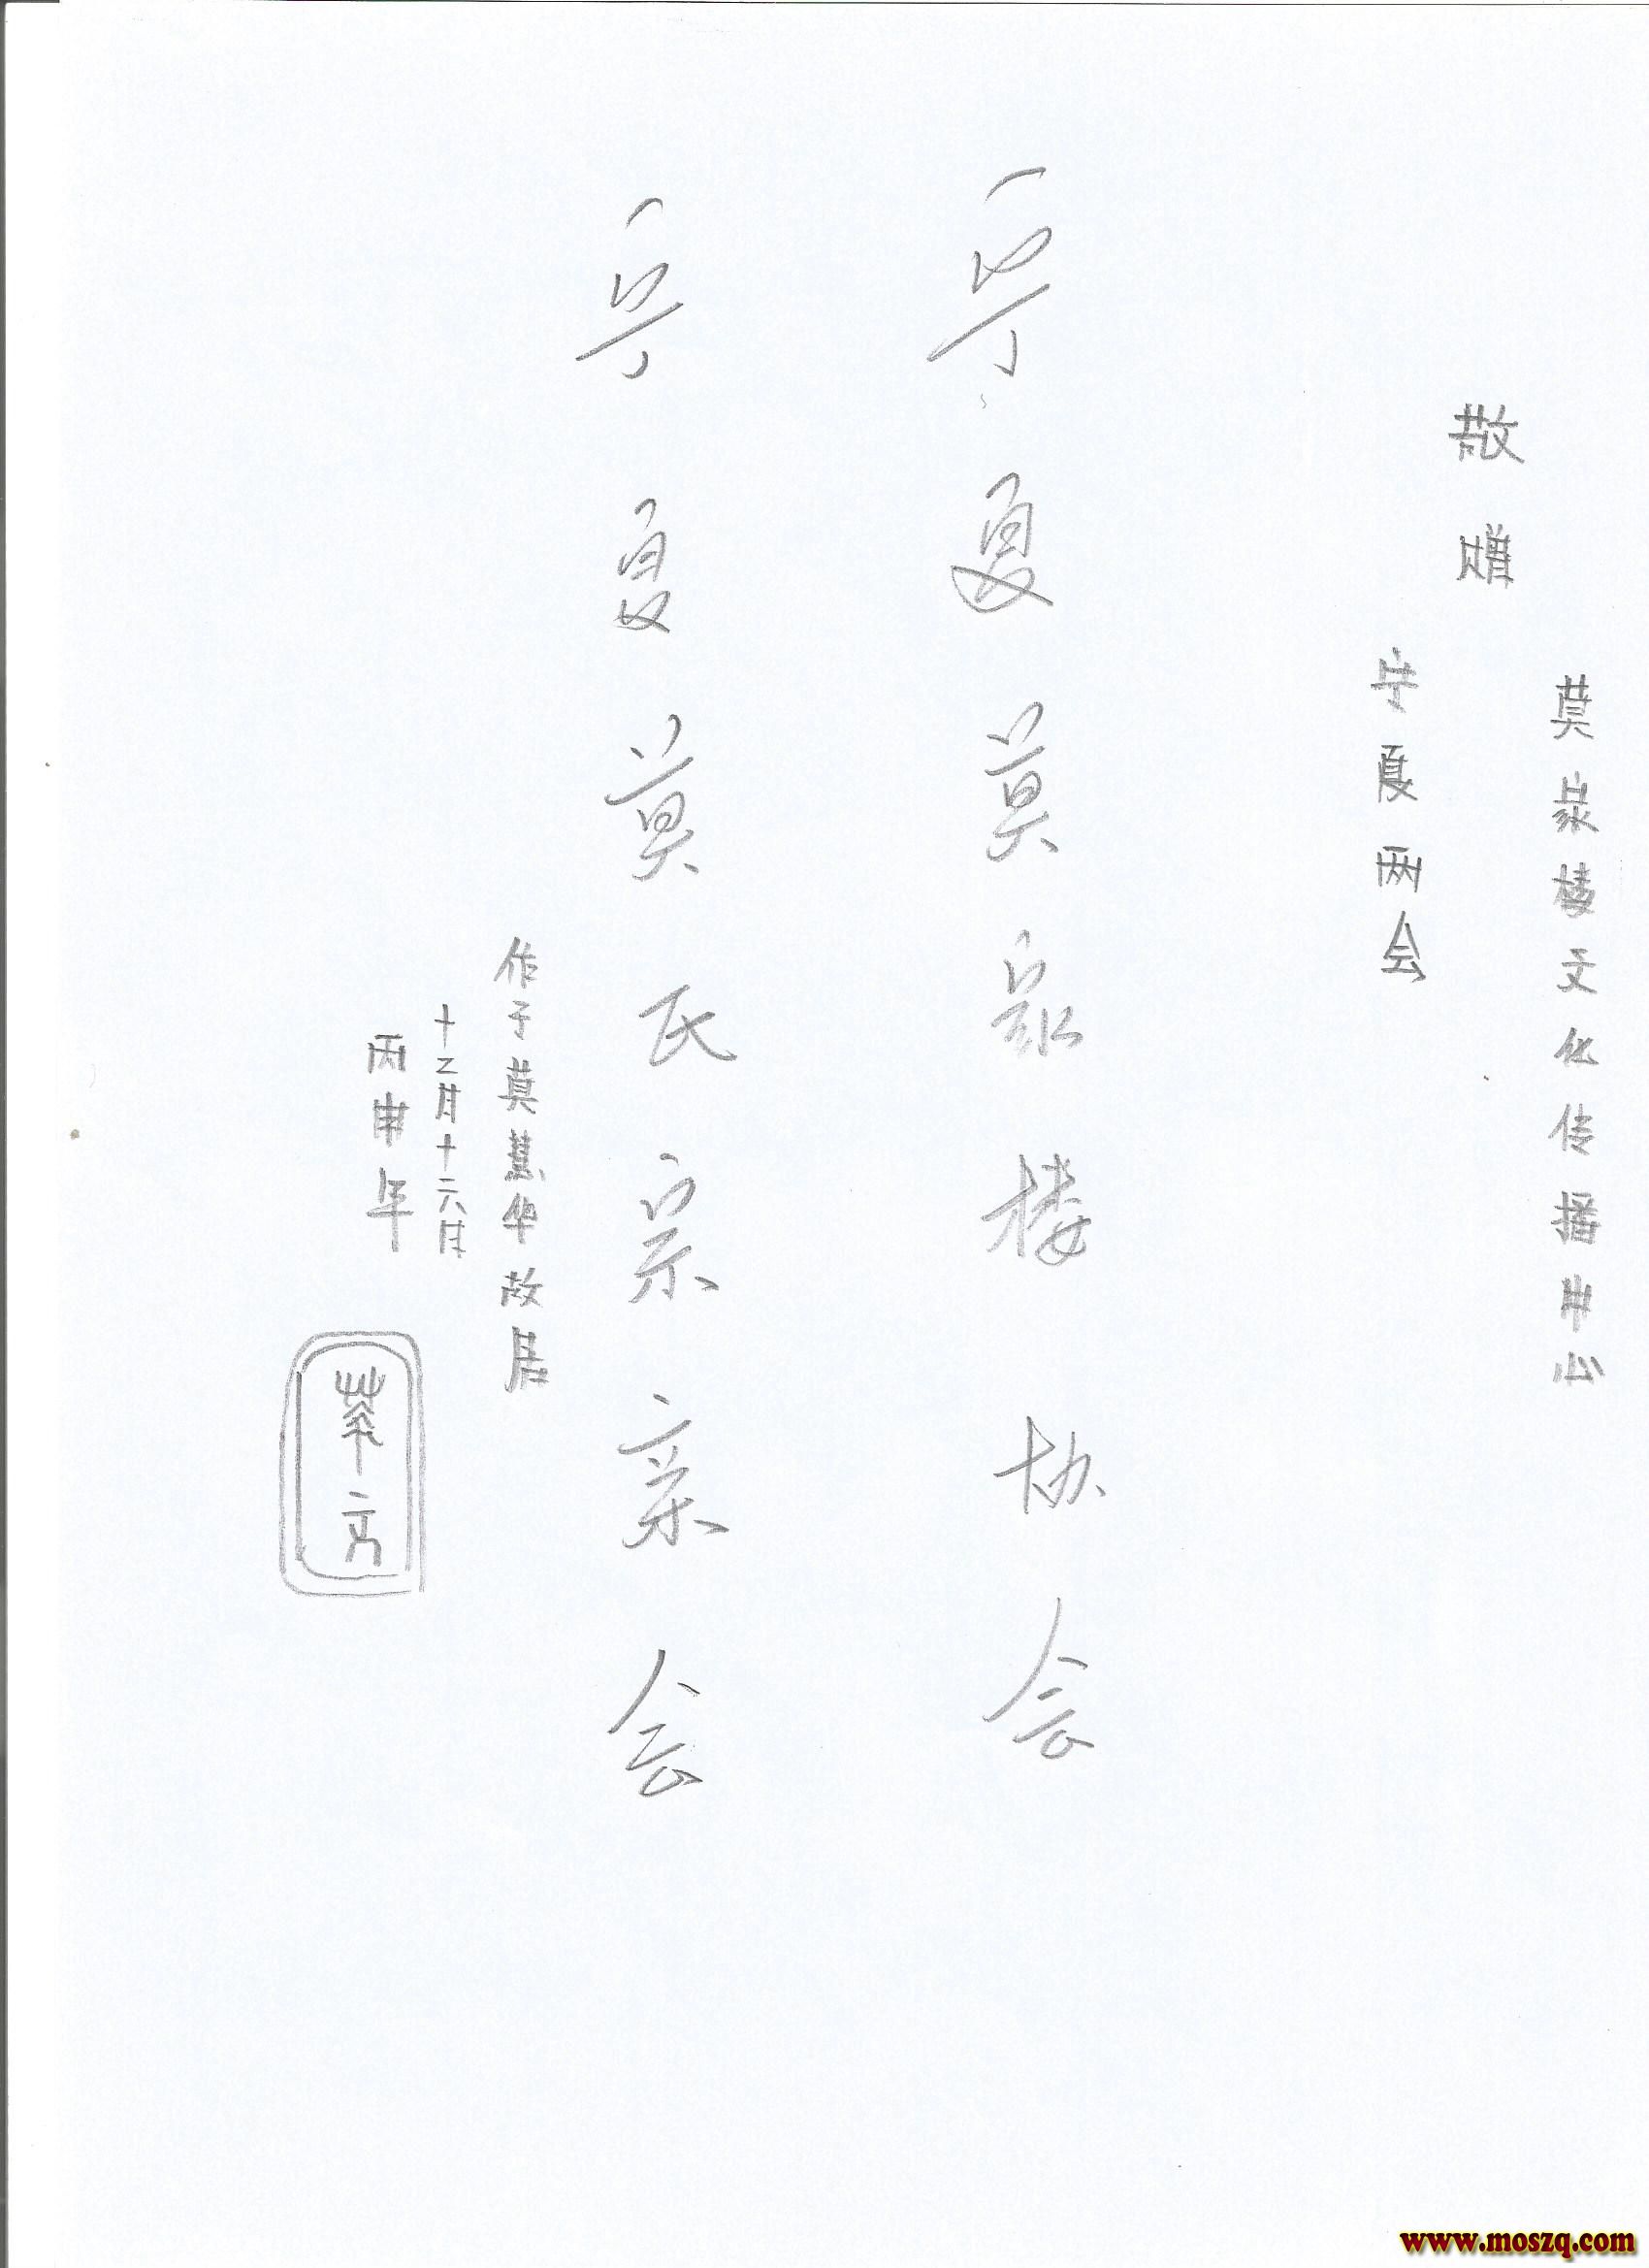 莫家楼文化传播中心
敬赠
宁夏两会
宁夏莫家楼协会
宁夏莫氏宗亲会
作于莫慧华故居
十二月十六日
丙申年
www.moszq.com